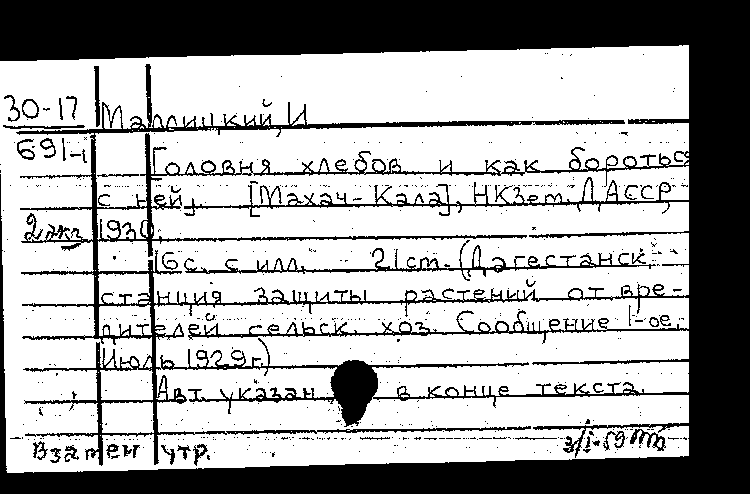 30-17 Маллицкий, И
691-1 Головня хлебов и как бороться
с ней. [Махач-Кала], НКЗем. ДАССР,
2 экз 1930.
16с. с илл. 21ст. (Дагестанск.
станция защиты растений от вре-
дителей сельск. хоз. Сообщение 1-ое.
Июль 1929г.)
Авт. указан в конце текста.
Взамен утр. 3/I-59